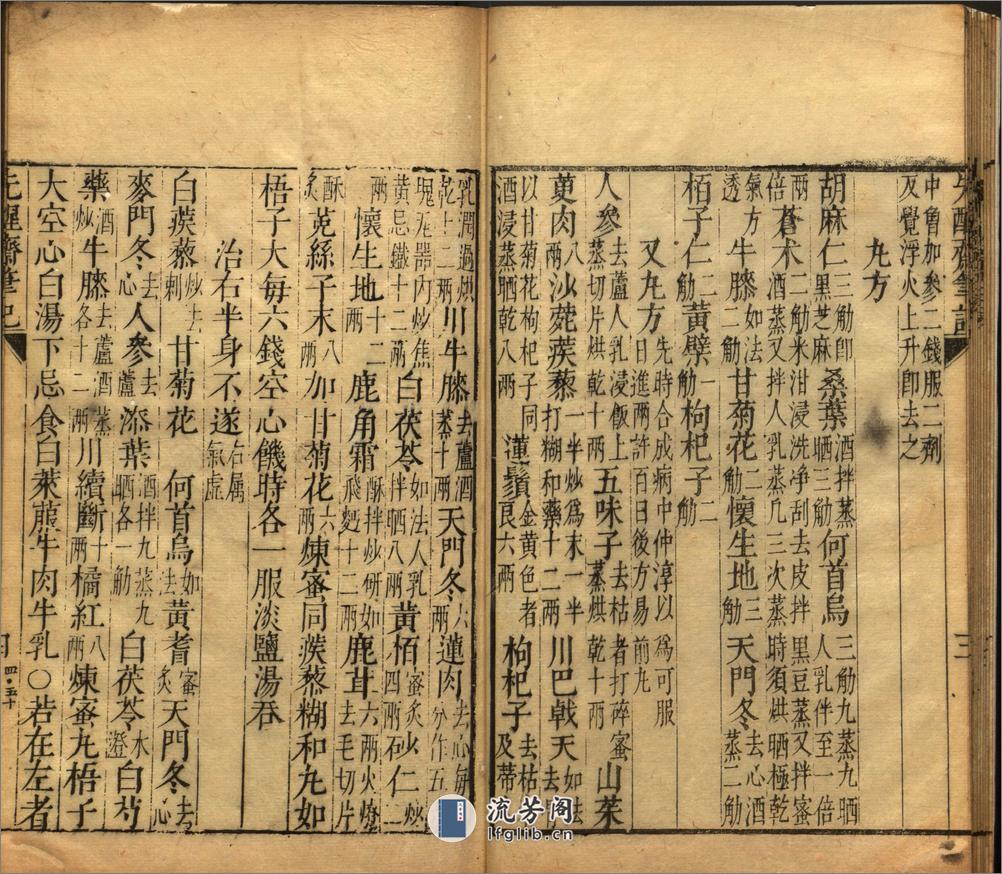 先醒齋筆記 三
中嘗加參二錢服二劑
反覺浮火上升卽去之
丸方
胡麻仁三觔卽黑芝麻桑葉酒拌蒸晒三觔何首烏三觔九蒸九晒人乳伴至一倍
兩倍蒼术二觔米泔浸洗淨刮去皮拌黑豆蒸又拌蜜酒蒸又拌人乳蒸凡三次蒸時須烘晒極乾
氣方透牛膝如法二觔甘菊花二觔懷生地三觔天門冬去心酒蒸二觔
栢子仁二觔黃檗一觔枸杞子二觔
又丸方先時合成病中仲淳以為可服日進兩許百日後方易前丸
人參去蘆人乳浸飯上蒸切片烘乾十兩五味子去枯者打碎蜜蒸烘乾十兩山茱
萸肉八兩沙苑蒺藜一半炒為末一半打糊和藥十二兩川巴戟天如法去
以甘菊花枸杞子同酒浸蒸晒乾八兩蓮鬚金黃色者良六兩枸杞子去枯及蒂
乳潤過烘乾十二兩川牛膝去蘆酒蒸十兩天門冬六兩蓮肉去心每分作五
塊瓦器內炒焦黃忌鐵十二兩白茯苓如法人乳拌晒八兩黃栢蜜炙四兩砂仁炒二
兩懷生地十二兩鹿角霜酥拌炒研如飛麪十二兩鹿茸六兩火燎去毛切片
酥炙菟絲子末八兩加甘菊花六兩煉蜜同蒺藜糊和丸如
梧子大每六錢空心饑時各一服淡鹽湯吞
治右半身不遂右属氣虛
白蒺藜炒去刺甘菊花 何首烏如法黃耆蜜炙天門冬去心
麥門冬去心人參去蘆桑葉酒拌九蒸九晒各一觔白茯苓水澄白芍
藥酒炒牛膝去蘆酒蒸各十二兩川續斷十兩橘紅八兩煉蜜丸梧子
大空心白湯下忌食白萊菔牛肉牛乳○若在左者
先醒齋筆記 四 四·五十
流芳阁
lfglib.cn